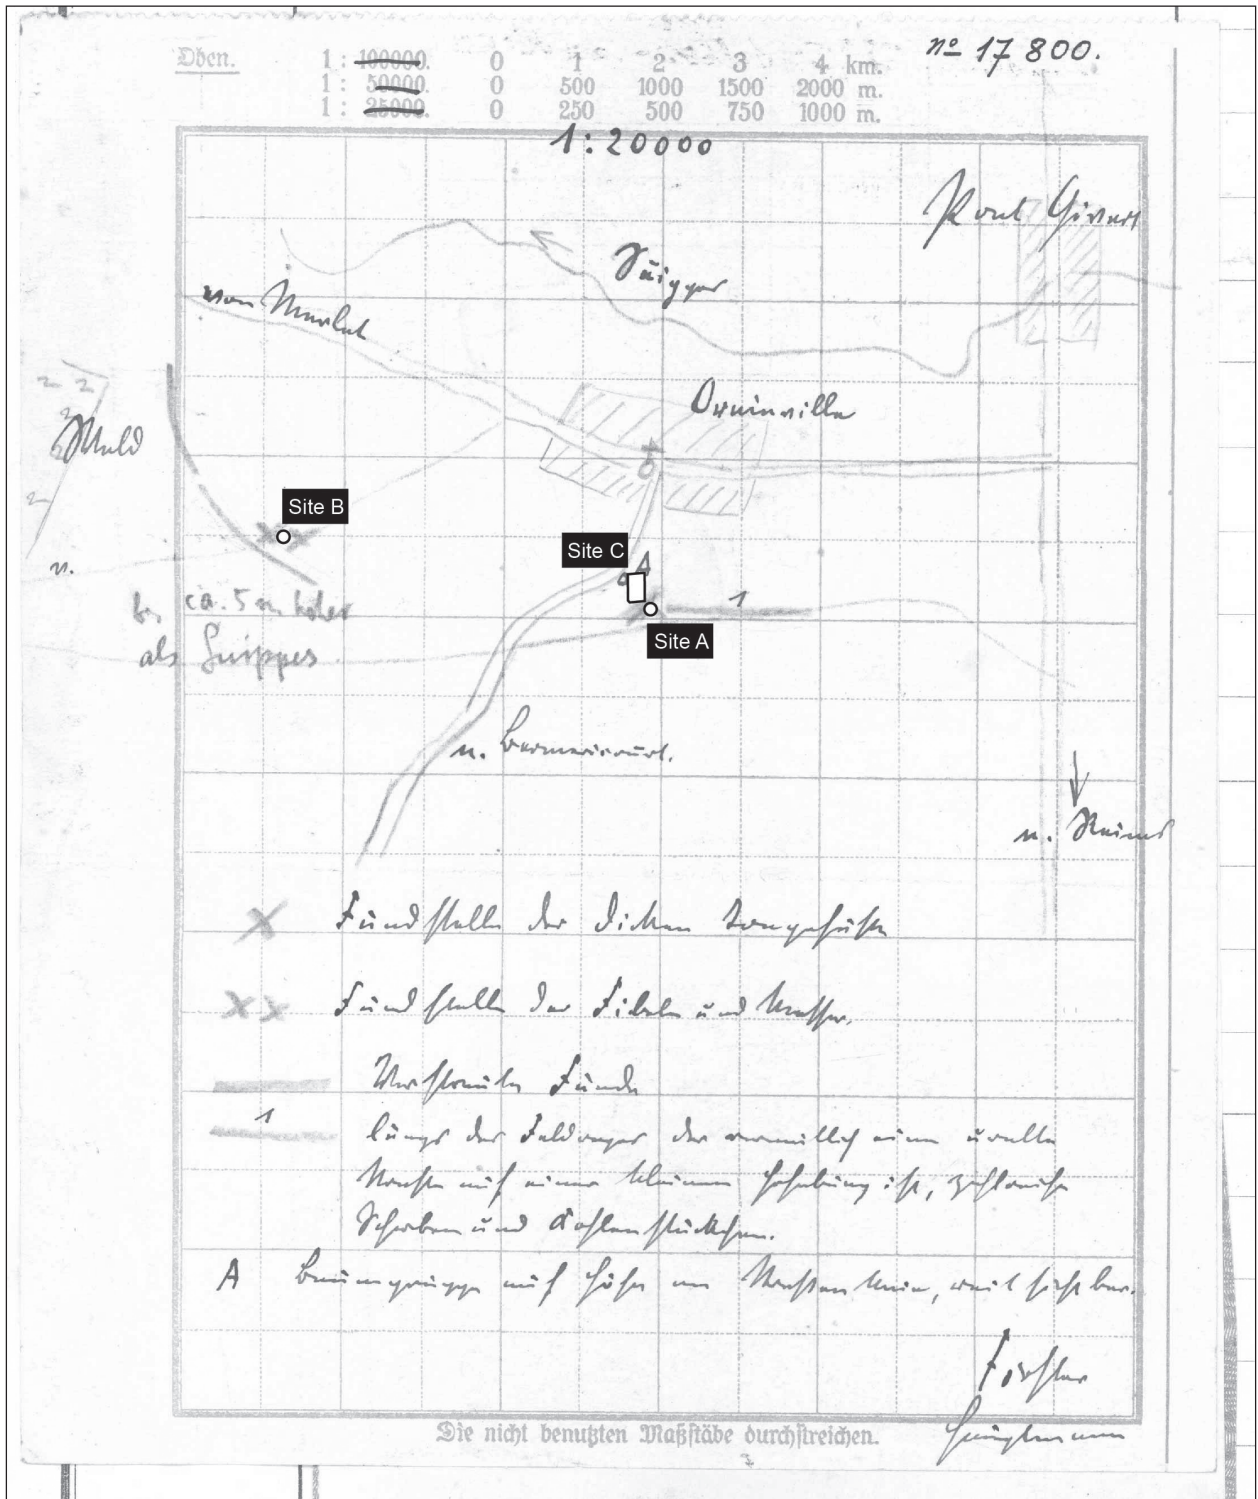 nº 17 800.
Oben. 1 : 100000. 0 1 2 3 4 km.
1 : 50000. 0 500 1000 1500 2000 m.
1 : 25000. 0 250 500 750 1000 m.
1:20000
Pont Givart
Süippes
von Merlet
Orainville
Wald
Site B
n.
Site C
A
1
ca. 5 m höher
als Suippes
Site A
n. Bermericourt.
n. Reims
Fundstelle der dicken Tongefäße
Fundstelle der Fibeln und Messer.
Verstreute Funde
1
längs des Feldweges der vermutlich eine uralte
Straße auf einer kleinen Erhebung ist, zahlreiche
Scherben und Kohlenstückchen.
A Baumgruppe auf Höhe am Straßenknie, weit sichtbar.
Forster
Hauptmann
Die nicht benutzten Maßstäbe durchstreichen.